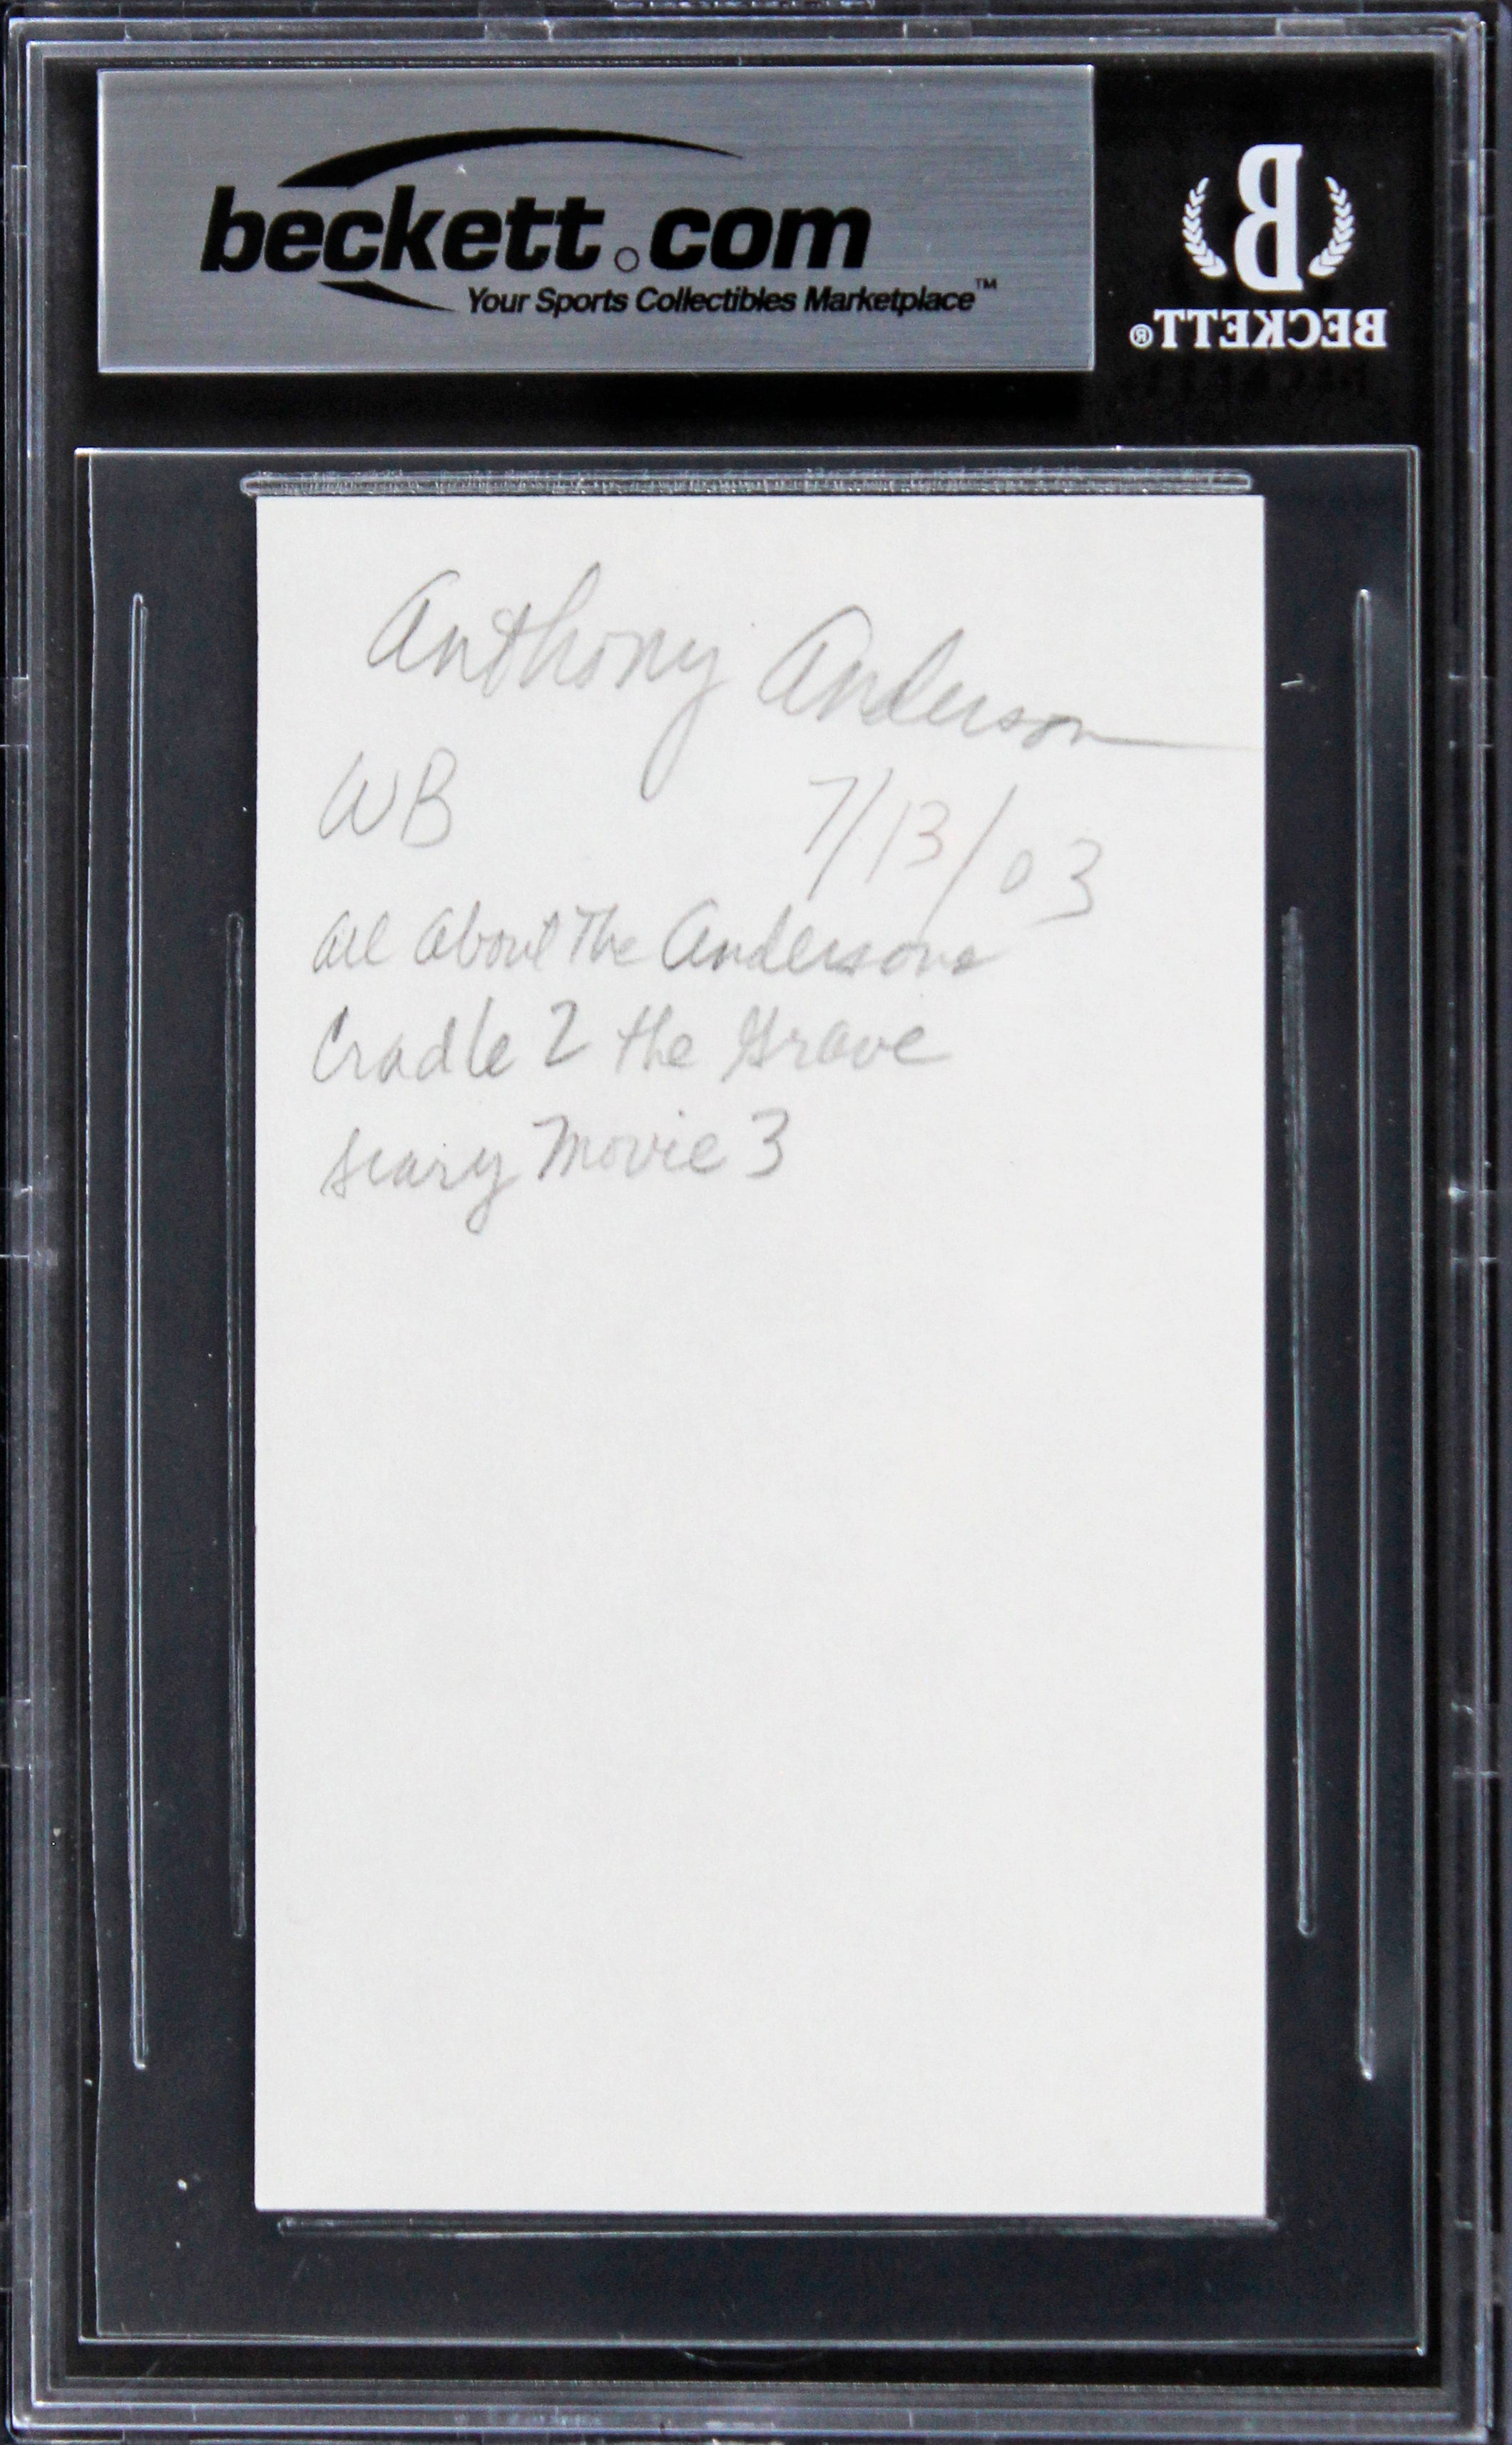 beckett.com
Your Sports Collectibles Marketplace™
B
BECKETT®
Anthony Anderson
WB 7/13/03
All About The Andersons
Cradle 2 the Grave
Scary Movie 3